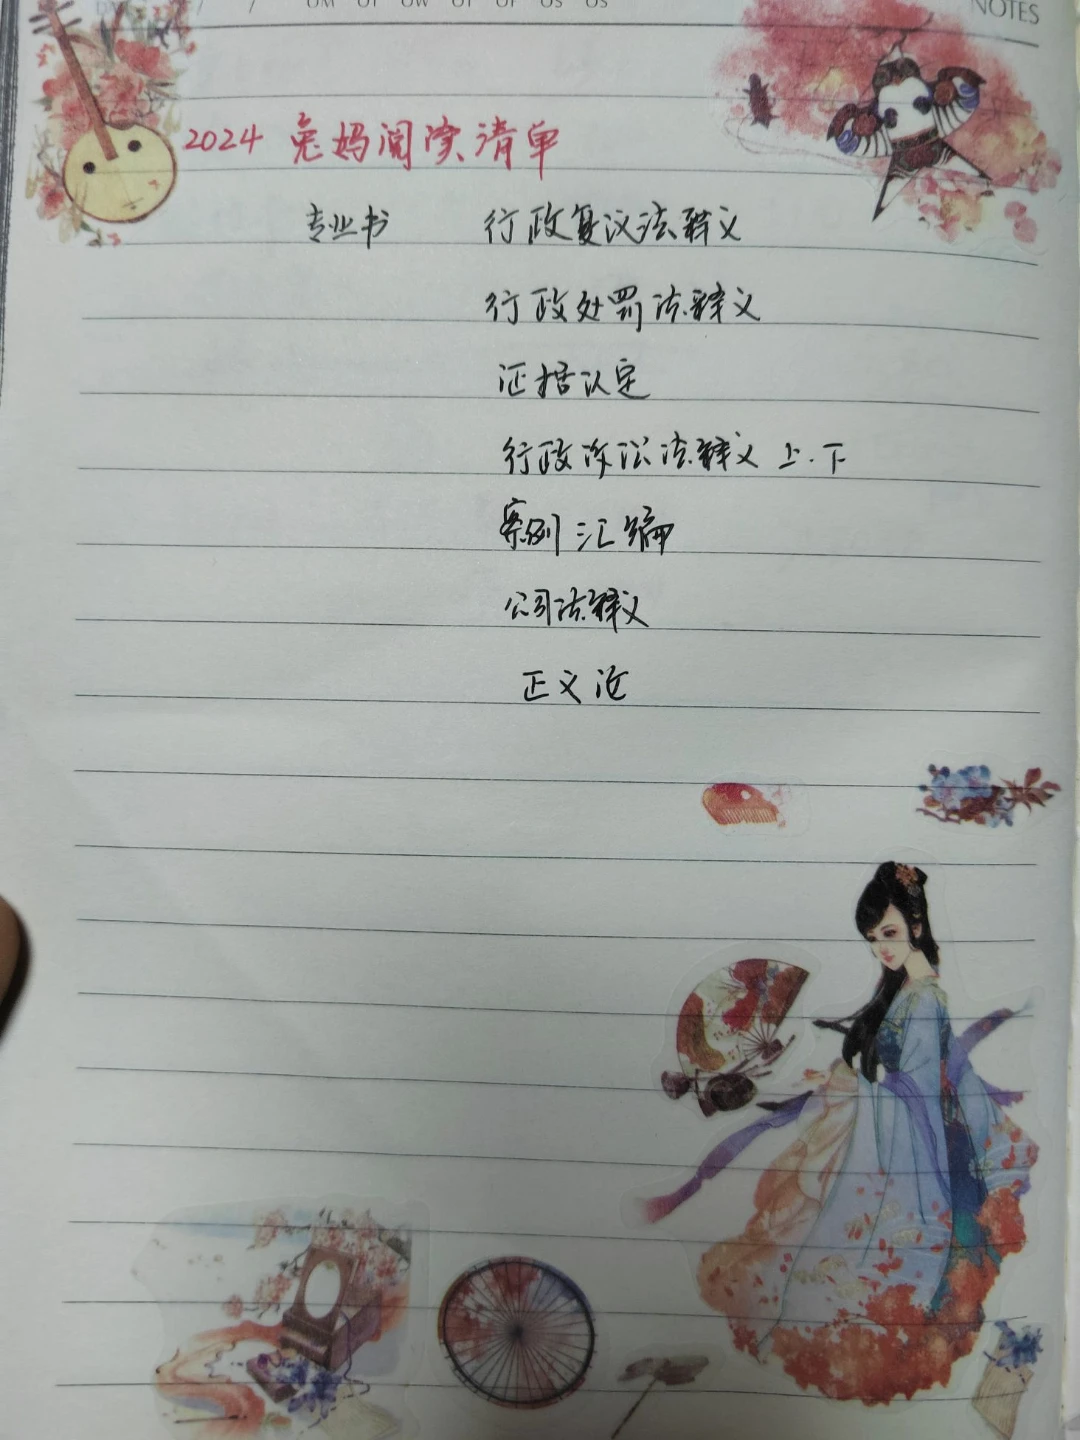 NOTES
2024 兔妈阅读清单
专业书 行政复议法释义
行政处罚法释义
证据认定
行政诉讼法释义 上.下
案例汇编
公司法释义
正义论